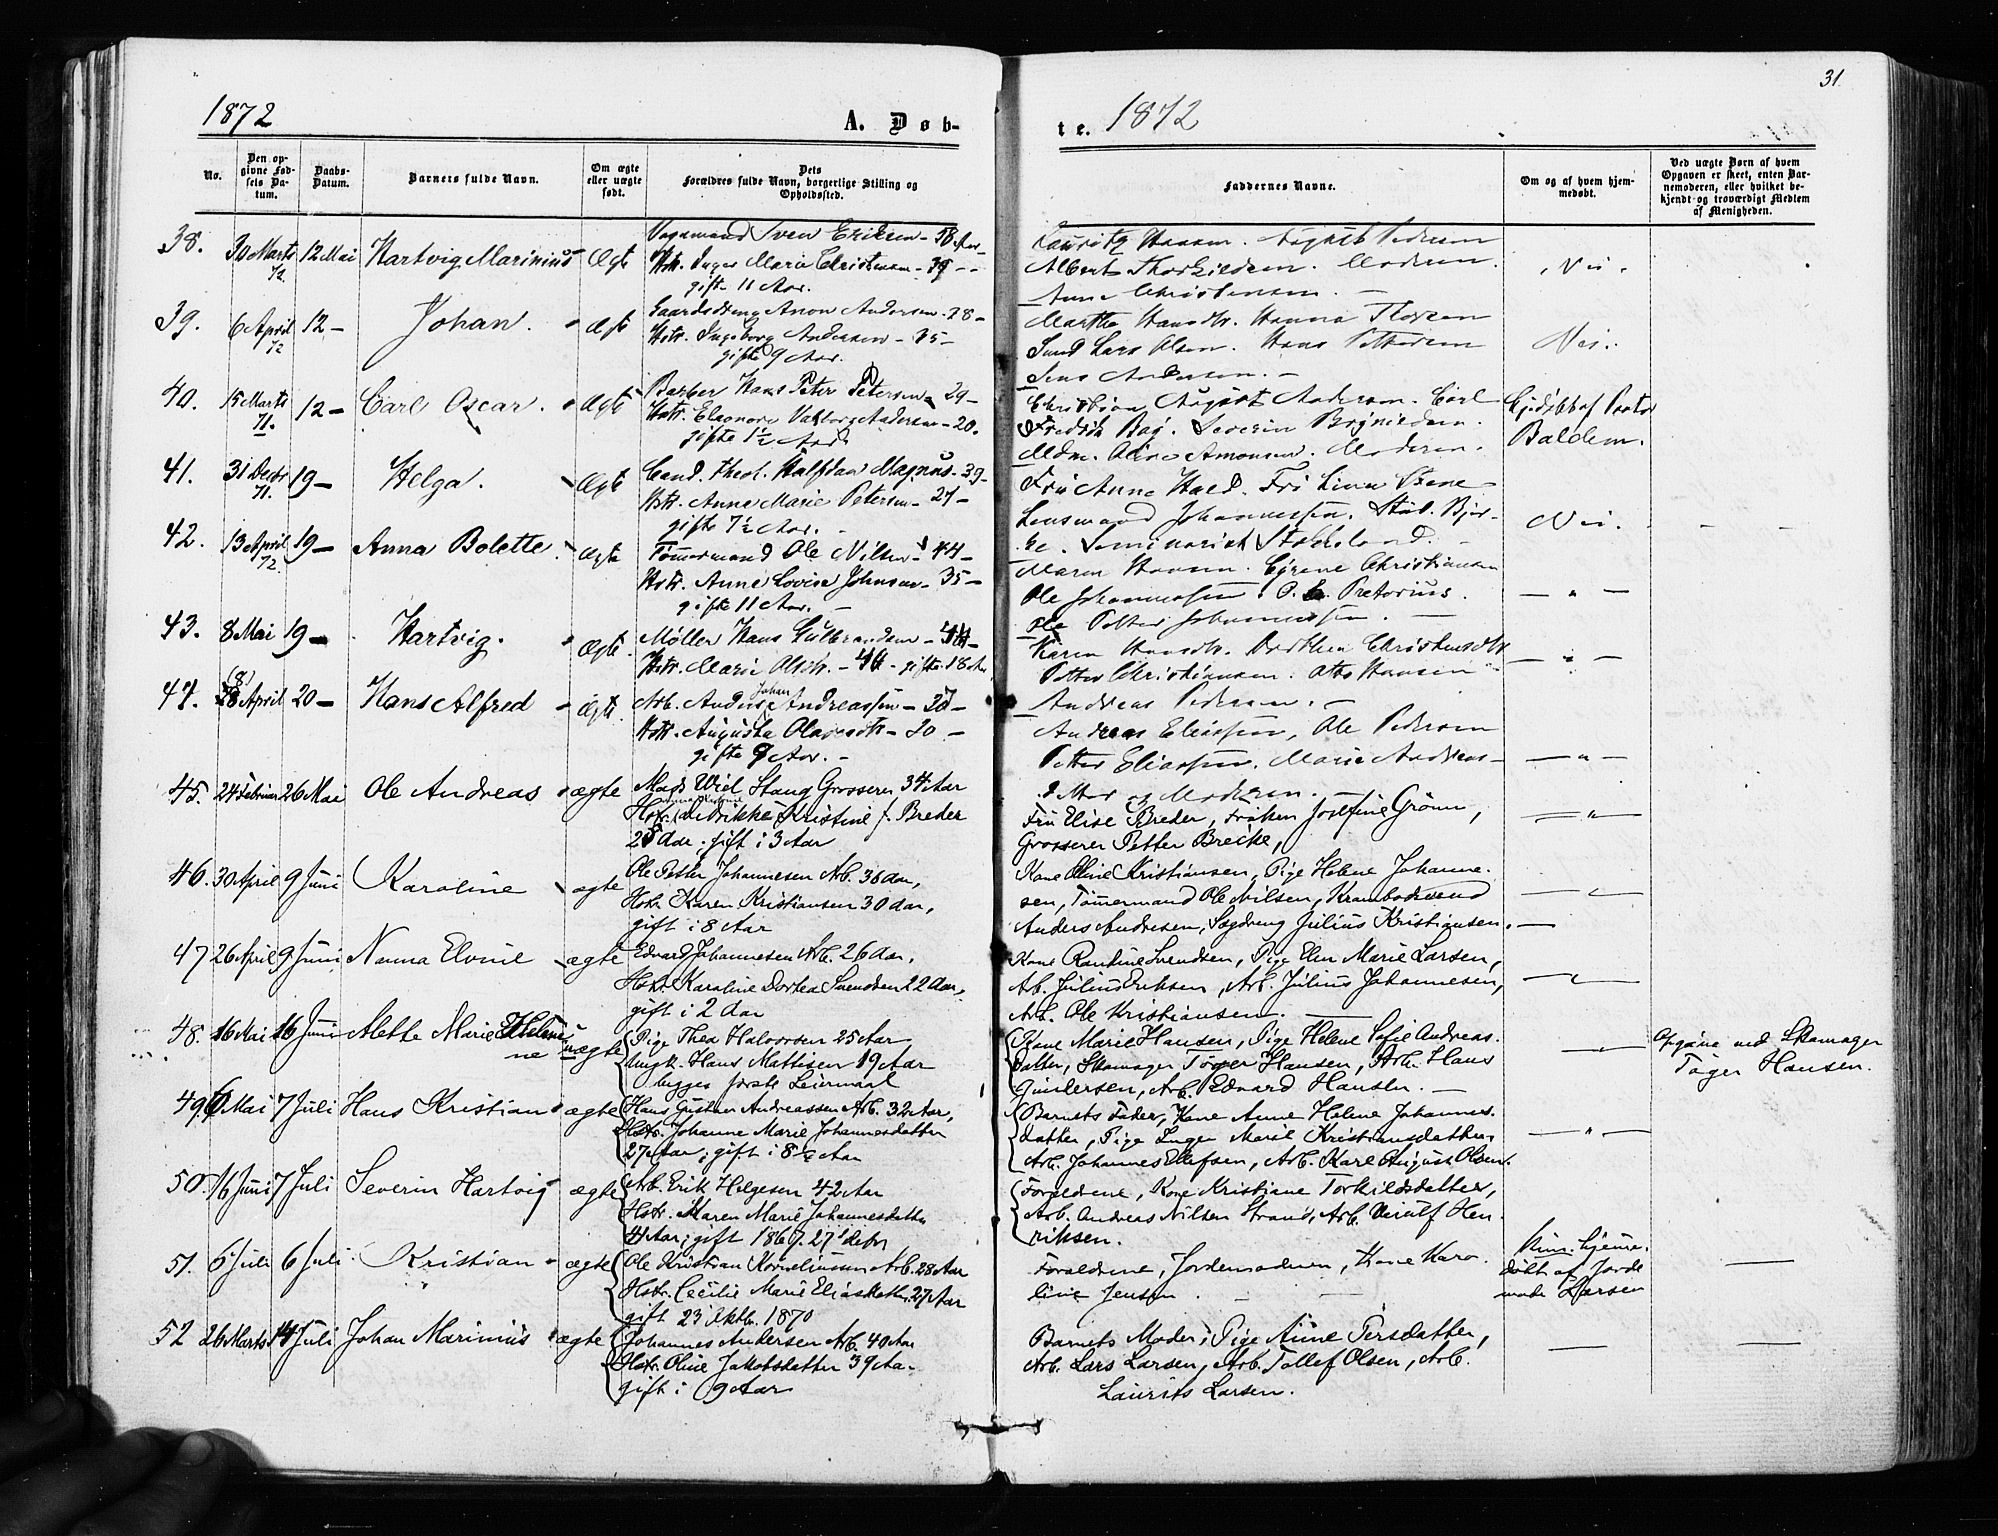 1872
A. Døb-
No.
Den opgivne Fødsels Datum.
Daabs-Datum.
Barnets fulde Navn.
Om ægte eller uægte født.
Dets Forældres fulde Navn, borgerlige Stilling og Opholdssted.
38. 30 Marts 72 12 Mai Hartvig Marinius Ægte
Sven Eriksen - 38 Aar
Hstr. Inger Marie Christensen - 39 -
gifte 11 Aar.
39. 6 April 72 12 - Johan. Ægte
Anon Andersen - 38 -
Hstr. Ingeborg Andersen - 35 -
gifte 9 Aar.
40. 15 Marts 71. 12 - Carl Oscar. Ægte
Barber Hans Peter Petersen - 29 -
Hstr. Eleonore Andersen - 20.
gifte 1½ Aar
41. 31 Decbr 71. 19 - Helga. Ægte
Cand. Theol. Halfdan Magnus - 39 -
Hstr. Anne Marie Petersen - 27 -
gifte 7½ Aar. -
42. 13 April 72. 19 - Anna Bolette. Ægte
Tømmermand Ole Nilsen - 44 -
Hstr. Anne Lovise Johnsen - 35 -
gifte 11 Aar. -
43. 8 Mai 19 - Hartvig. Ægte
Møller Hans Gulbrandsen - 44 -
Hstr. Marie Olsdr. - 44 - gifte 18 Aar
44. 28 April 20 - Hans Alfred Ægte.
Arb. Anders Johan Andreassen - 37 -
Hstr. Augusta Olavesdr - 30 -
gifte 9 Aar. -
45. 24 Februar 26 Mai Ole Andreas ægte
Mads Wiel Stang Grosserer 34 Aar
Hstr. Didrikke Kristine f. Breder
25 Aar; gift i 3 Aar
46. 30 April 9 Juni Karoline ægte
Ole Petter Johannesen Arb. 36 Aar,
Hstr Karen Kristiansen 30 Aar,
gift i 8 Aar
47 26 April 9 Juni Nanna Elvine ægte
Edvard Johannesen Arb. 26 Aar,
Hstr. Karoline Dortea Svendsen 22 Aar,
gift i 2 Aar
48. 16 Mai 16 Juni Mette Marie Helene uægte
Pige Thea Halvorsen 25 Aar
Ungk. Hans Mattisen 19 Aar
begges første Leiermaal
49. 6 Mai 7 Juli Hans Kristian ægte
Hans Gustav Andreassen Arb. 32 Aar,
Hstr. Johanne Marie Johannesdatter
27 Aar; gift i 8½ Aar
50. 16 Juni 7 Juli Severin Hartvig ægte
Arb. Erik Helgesen 42 Aar
Hstr. Maren Marie Johannesdatter
41 Aar; gift 1867. 27' decbr
51. 6' Juli 6 Juli Kristian ægte
Ole Kristian Korneliussen Arb. 28 Aar
Hstr. Cecilie Marie Eliasdatter 27 Aar
gift 23' Oktb. 1870
52 26 Marts 14 Juli Johan Marinius ægte
Johannes Andersen Arb. 40 Aar
Hstr. Oline Jakobsdatter 39 Aar
gift i 9 Aar
31
te. 1872
Faddernes Navne.
Om og af hvem hjemmedøbt.
Ved uægte Børn af hvem Opgaven er skeet, enten Barnemoderen, eller hvilket bekjendt og troværdigt Medlem af Menigheden.
Lauritz Hansen. August Pedersen
Albert Thorkildsen. Moderen. Nei.
Anne Christensen. -
Martha Hansdtr. Hanna
Lars Olsen. Hans Pettersen Nei.
Jens Andersen. -
Christian August Andersen. Carl
Fredrik Severin
Moderen.
Fru Anne Hald. Fru Lina Stene
Lensmand Johannessen. Stud.
Seminarist Nei.
Maren Hansen. Christiansen
Ole Johannessen. Pretorius.
Petter Johannessen. -
Karen Hansdtr. Dorthea Christensdtr
Petter Christiansen. Otto Hansen
Andreas Pedersen. -
Andreas Eliassen, Ole Pedersen
Petter Eliassen. Marie Andreas-
datter og Moderen. -
Fru Elise Breder, Frøken Josefine Grønn,
Grosserer Petter Brecke,
Kone Oline Kristiansen, Pige Helene Johanne-
sen, Tømmermand Ole Nilsen, Krambodsvend
Anders Andresen, Sagdreng Julius Kristiansen.
Kone Svendsen, Pige Elen Marie Larsen,
Arb. Julius Eriksen, Arb. Julius Johannesen,
Arb. Ole Kristiansen. -
Kone Marie Hansen, Pige Helene Sofie Andreas-
datter, Skomager Tøger Hansen, Arb. Hans
Gundersen, Arb. Edvard Hansen. -
Opgave ved Skomager
Tøger Hansen.
Barnets Fader, Kone Anne Helene Johannes-
datter, Pige Inger Marie Kristiansdatter,
Arb. Johannes Ellefsen, Arb. Karl August Olsen.
Forældrene, Kone Kristiane Torkildsdatter,
Arb. Andreas Nilsen Strand, Arb. Hen-
riksen.
Forældrene, Jordemoderen, Kone Karo-
line Jensen.
Kun hjemme-
døbt af Jorde
mode Larsen
Barnets Moder, Pige Anne Persdatter,
Arb. Lars Larsen, Arb. Tollef Olsen, Arb.
Laurits Larsen.